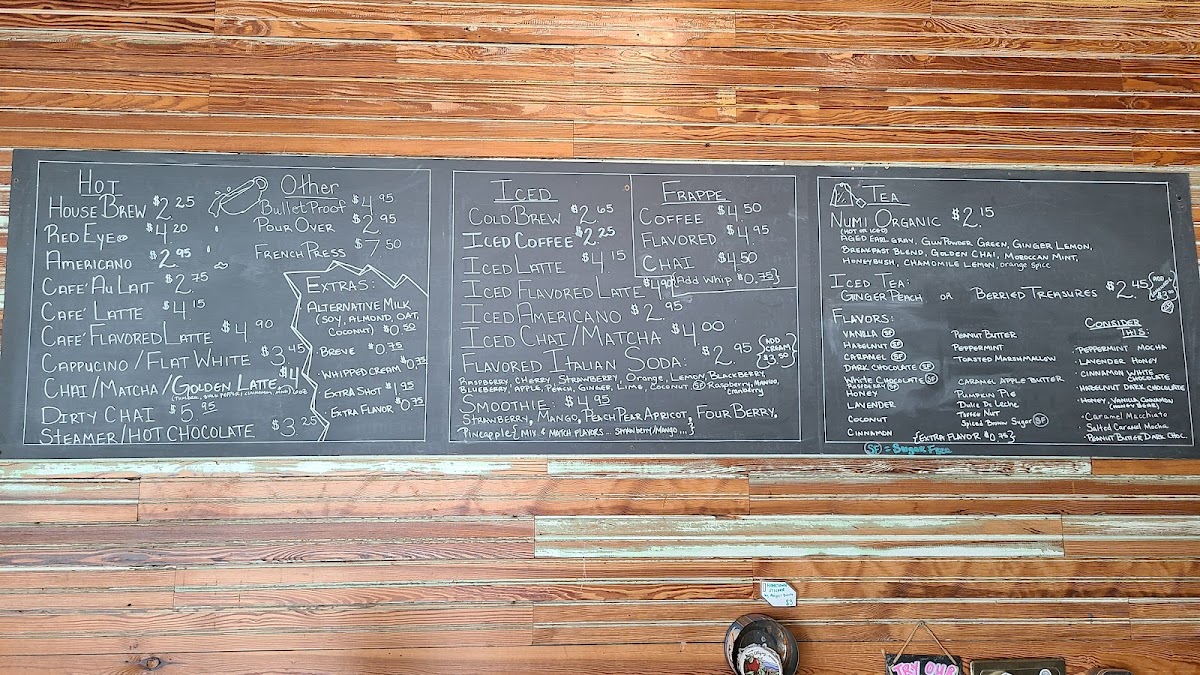 HOT
HOUSE BREW $2.25
RED EYE $4.20
AMERICANO $2.95
CAFE' AU LAIT $2.75
CAFE' LATTE $4.15
CAFE' FLAVORED LATTE $4.90
CAPPUCINO / FLAT WHITE $3.45
CHAI / MATCHA / GOLDEN LATTE $4
DIRTY CHAI $5.95
STEAMER / HOT CHOCOLATE $3.25
OTHER
BULLETPROOF $4.95
POUR OVER $2.95
FRENCH PRESS $7.50
EXTRAS:
ALTERNATIVE MILK
(SOY, ALMOND, OAT,
COCONUT) $0.50
· BREVE $0.75
· WHIPPED CREAM $0.75
· EXTRA SHOT $1.95
· EXTRA FLAVOR $0.75
ICED
COLD BREW $2.65
ICED COFFEE $2.25
ICED LATTE $4.15
ICED FLAVORED LATTE $4.90
ICED AMERICANO $2.95
ICED CHAI / MATCHA $4.00
FLAVORED ITALIAN SODA: $2.95 {ADD CREAM $3.50}
RASPBERRY, CHERRY, STRAWBERRY, ORANGE, LEMON, BLACKBERRY,
BLUEBERRY, APPLE, PEACH, GINGER, LIME, COCONUT, SF RASPBERRY, MANGO,
CRANBERRY
SMOOTHIE: $4.95
STRAWBERRY, MANGO, PEACH PEAR APRICOT, FOUR BERRY,
PINEAPPLE {MIX & MATCH FLAVORS... STRAWBERRY/MANGO...}
FRAPPE
COFFEE $4.50
FLAVORED $4.95
CHAI $4.50
{ADD WHIP $0.75}
TEA
NUMI ORGANIC $2.15
(HOT OR ICED)
AGED EARL GRAY, GUNPOWDER GREEN, GINGER LEMON,
BREAKFAST BLEND, GOLDEN CHAI, MOROCCAN MINT,
HONEYBUSH, CHAMOMILE LEMON, orange spice
ICED TEA:
GINGER PEACH OR BERRIED TREASURES $2.45
FLAVORS:
VANILLA SF
HAZELNUT SF
CARAMEL SF
DARK CHOCOLATE SF
WHITE CHOCOLATE SF
RASPBERRY SF
HONEY
LAVENDER
COCONUT
CINNAMON
PEANUT BUTTER
PEPPERMINT
TOASTED MARSHMALLOW
CARAMEL APPLE BUTTER
PUMPKIN PIE
DULCE DE LECHE
TOFFEE NUT
SPICED BROWN SUGAR SF
{EXTRA FLAVOR $0.75}
SF = SUGAR FREE
CONSIDER
THIS:
· PEPPERMINT MOCHA
· LAVENDER HONEY
· CINNAMON WHITE
CHOCOLATE
· HAZELNUT DARK CHOCOLATE
· HONEY, VANILLA, CINNAMON
(HONEY BEAR)
· CARAMEL MACCHIATO
· SALTED CARAMEL MOCHA
· PEANUT BUTTER DARK CHOC.
TRY OUR